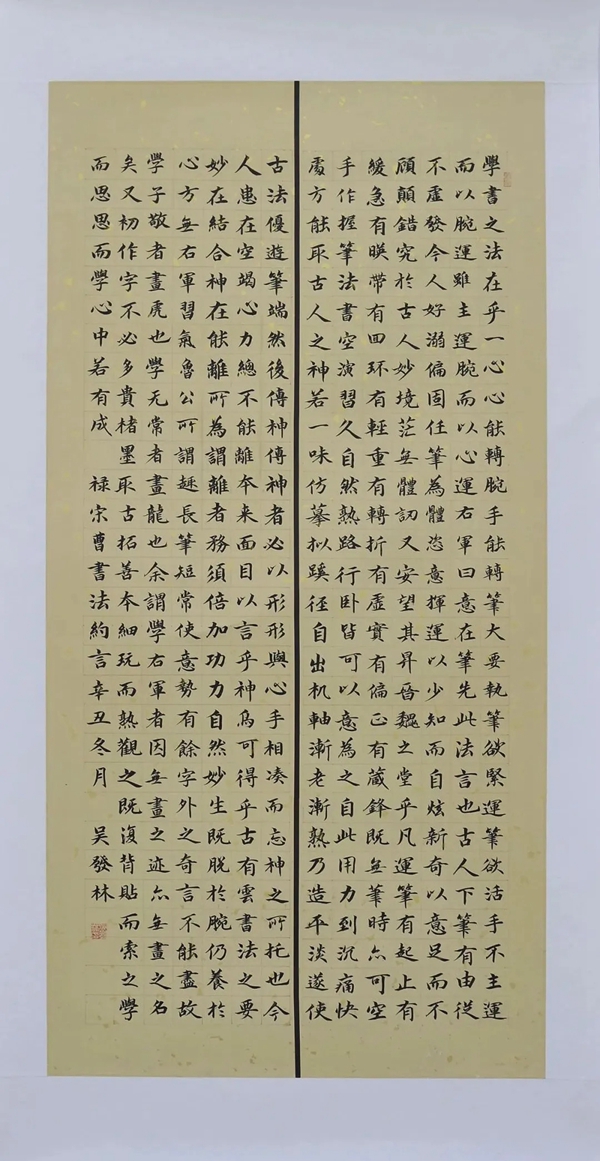 學書之法在乎一心心能轉腕手能轉筆大要執筆欲緊運筆欲活手不主運
而以腕運雖主運腕而以心運右軍曰意在筆先此法言也古人下筆有由從
不虛發今人好溺偏固任筆為體恣意揮運以少知而自炫新奇以意足而不
顧顛錯究於古人妙境茫無體訒又安望其昇晉魏之堂乎凡運筆有起止有
緩急有暎帶有回环有輕重有轉折有虛實有偏正有藏鋒既無筆時亦可空
手作握筆法書空演習久自然熟路行卧皆可以意為之自此用力到沉痛快
處方能取古人之神若一味仿摹拟蹊徑自出机軸漸老漸熟乃造平淡遂使
古法優遊筆端然後傳神傳神者必以形形與心手相凑而忘神之所托也今
人患在空竭心力總不能離本来面目以言乎神烏可得乎古有雲書法之要
妙在結合神在能離所為謂離者務須倍加功力自然妙生既脫於腕仍養於
心方無右軍習氣魯公所謂趣長筆短常使意勢有餘字外之奇言不能盡故
學子敬者畫虎也學无常者畫龍也余謂學右軍者因無畫之迹亦無畫之名
矣又初作字不必多貴楮墨取古拓善本細玩而熟觀之既復背貼而索之學
而思思而學心中若有成 禄宋曹書法約言辛丑冬月 吳發林